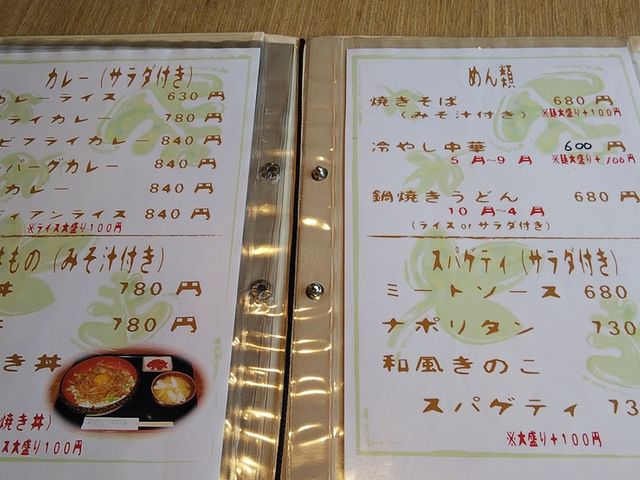 カレー(サラダ付き)
カレーライス 630円
ライカレー 780円
ビフライカレー 840円
バーグカレー 840円
カレー 840円
ディアンライス 840円
※ライス大盛り100円
もの(みそ汁付き)
丼 780円
780円
き丼
焼き丼)
ス大盛り100円
めん類
焼きそば 680円
(みそ汁付き) ※麺大盛り+100円
冷やし中華 600円
5月~9月 ※麺大盛り+100円
鍋焼きうどん 680円
10月~4月
(ライスorサラダ付き)
スパゲティ(サラダ付き)
ミートソース 680
ナポリタン 730
和風きのこ
スパゲティ 73
※大盛り+100円